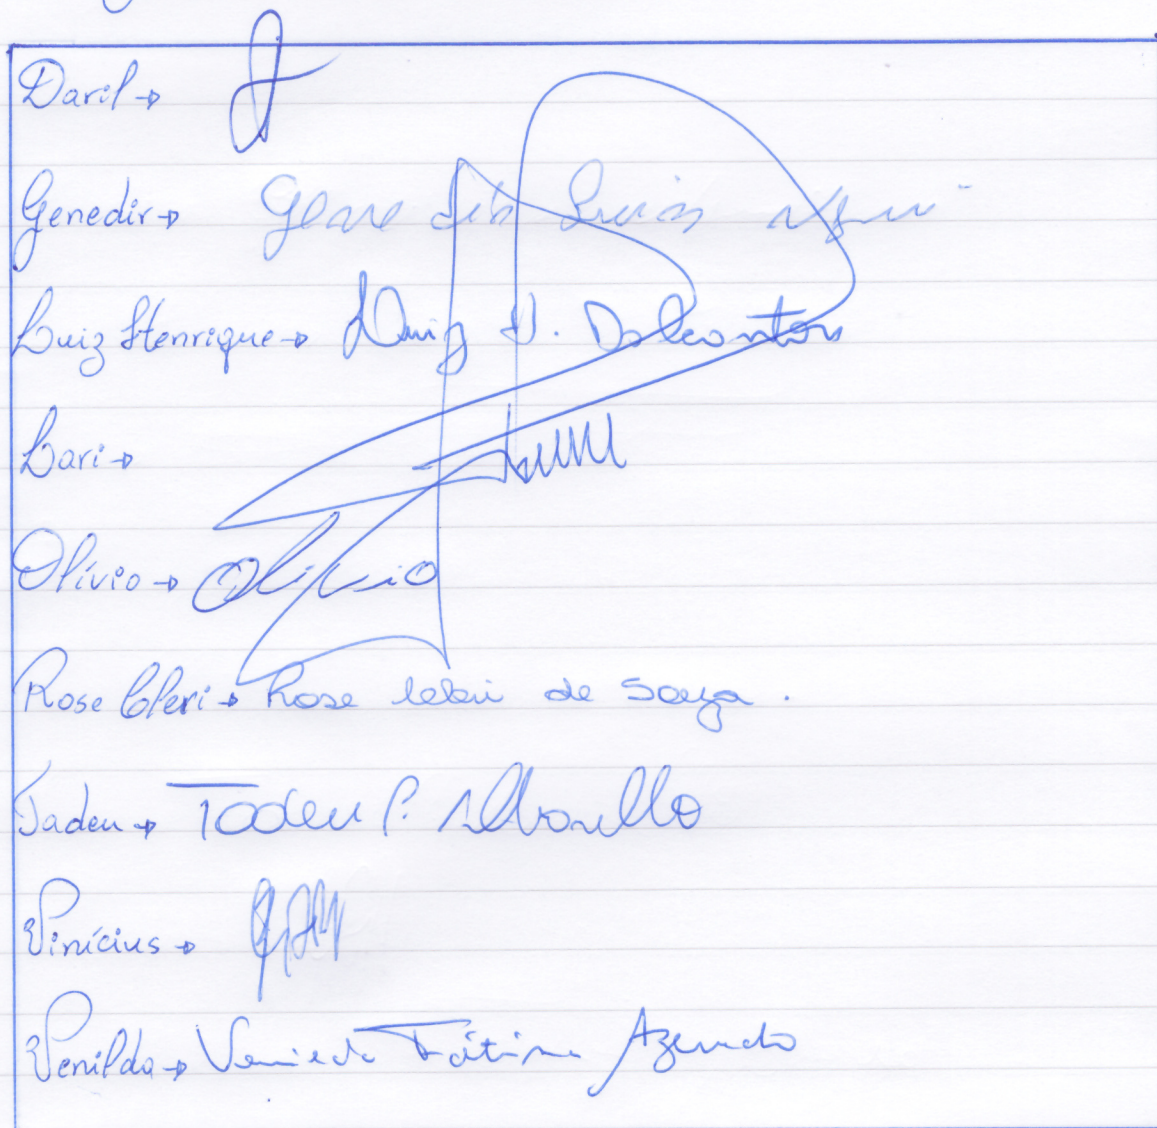 Daril →
Genedir → Genedir Luiz
Luiz Henrique → Luiz H. Dalcanton
Lari →
Olívio → Olívio
Rose Cleri → Rose Cleri de Souza.
Tadeu → Tadeu P.
Vinícius →
Venilda → Venilda Fátima Azevedo